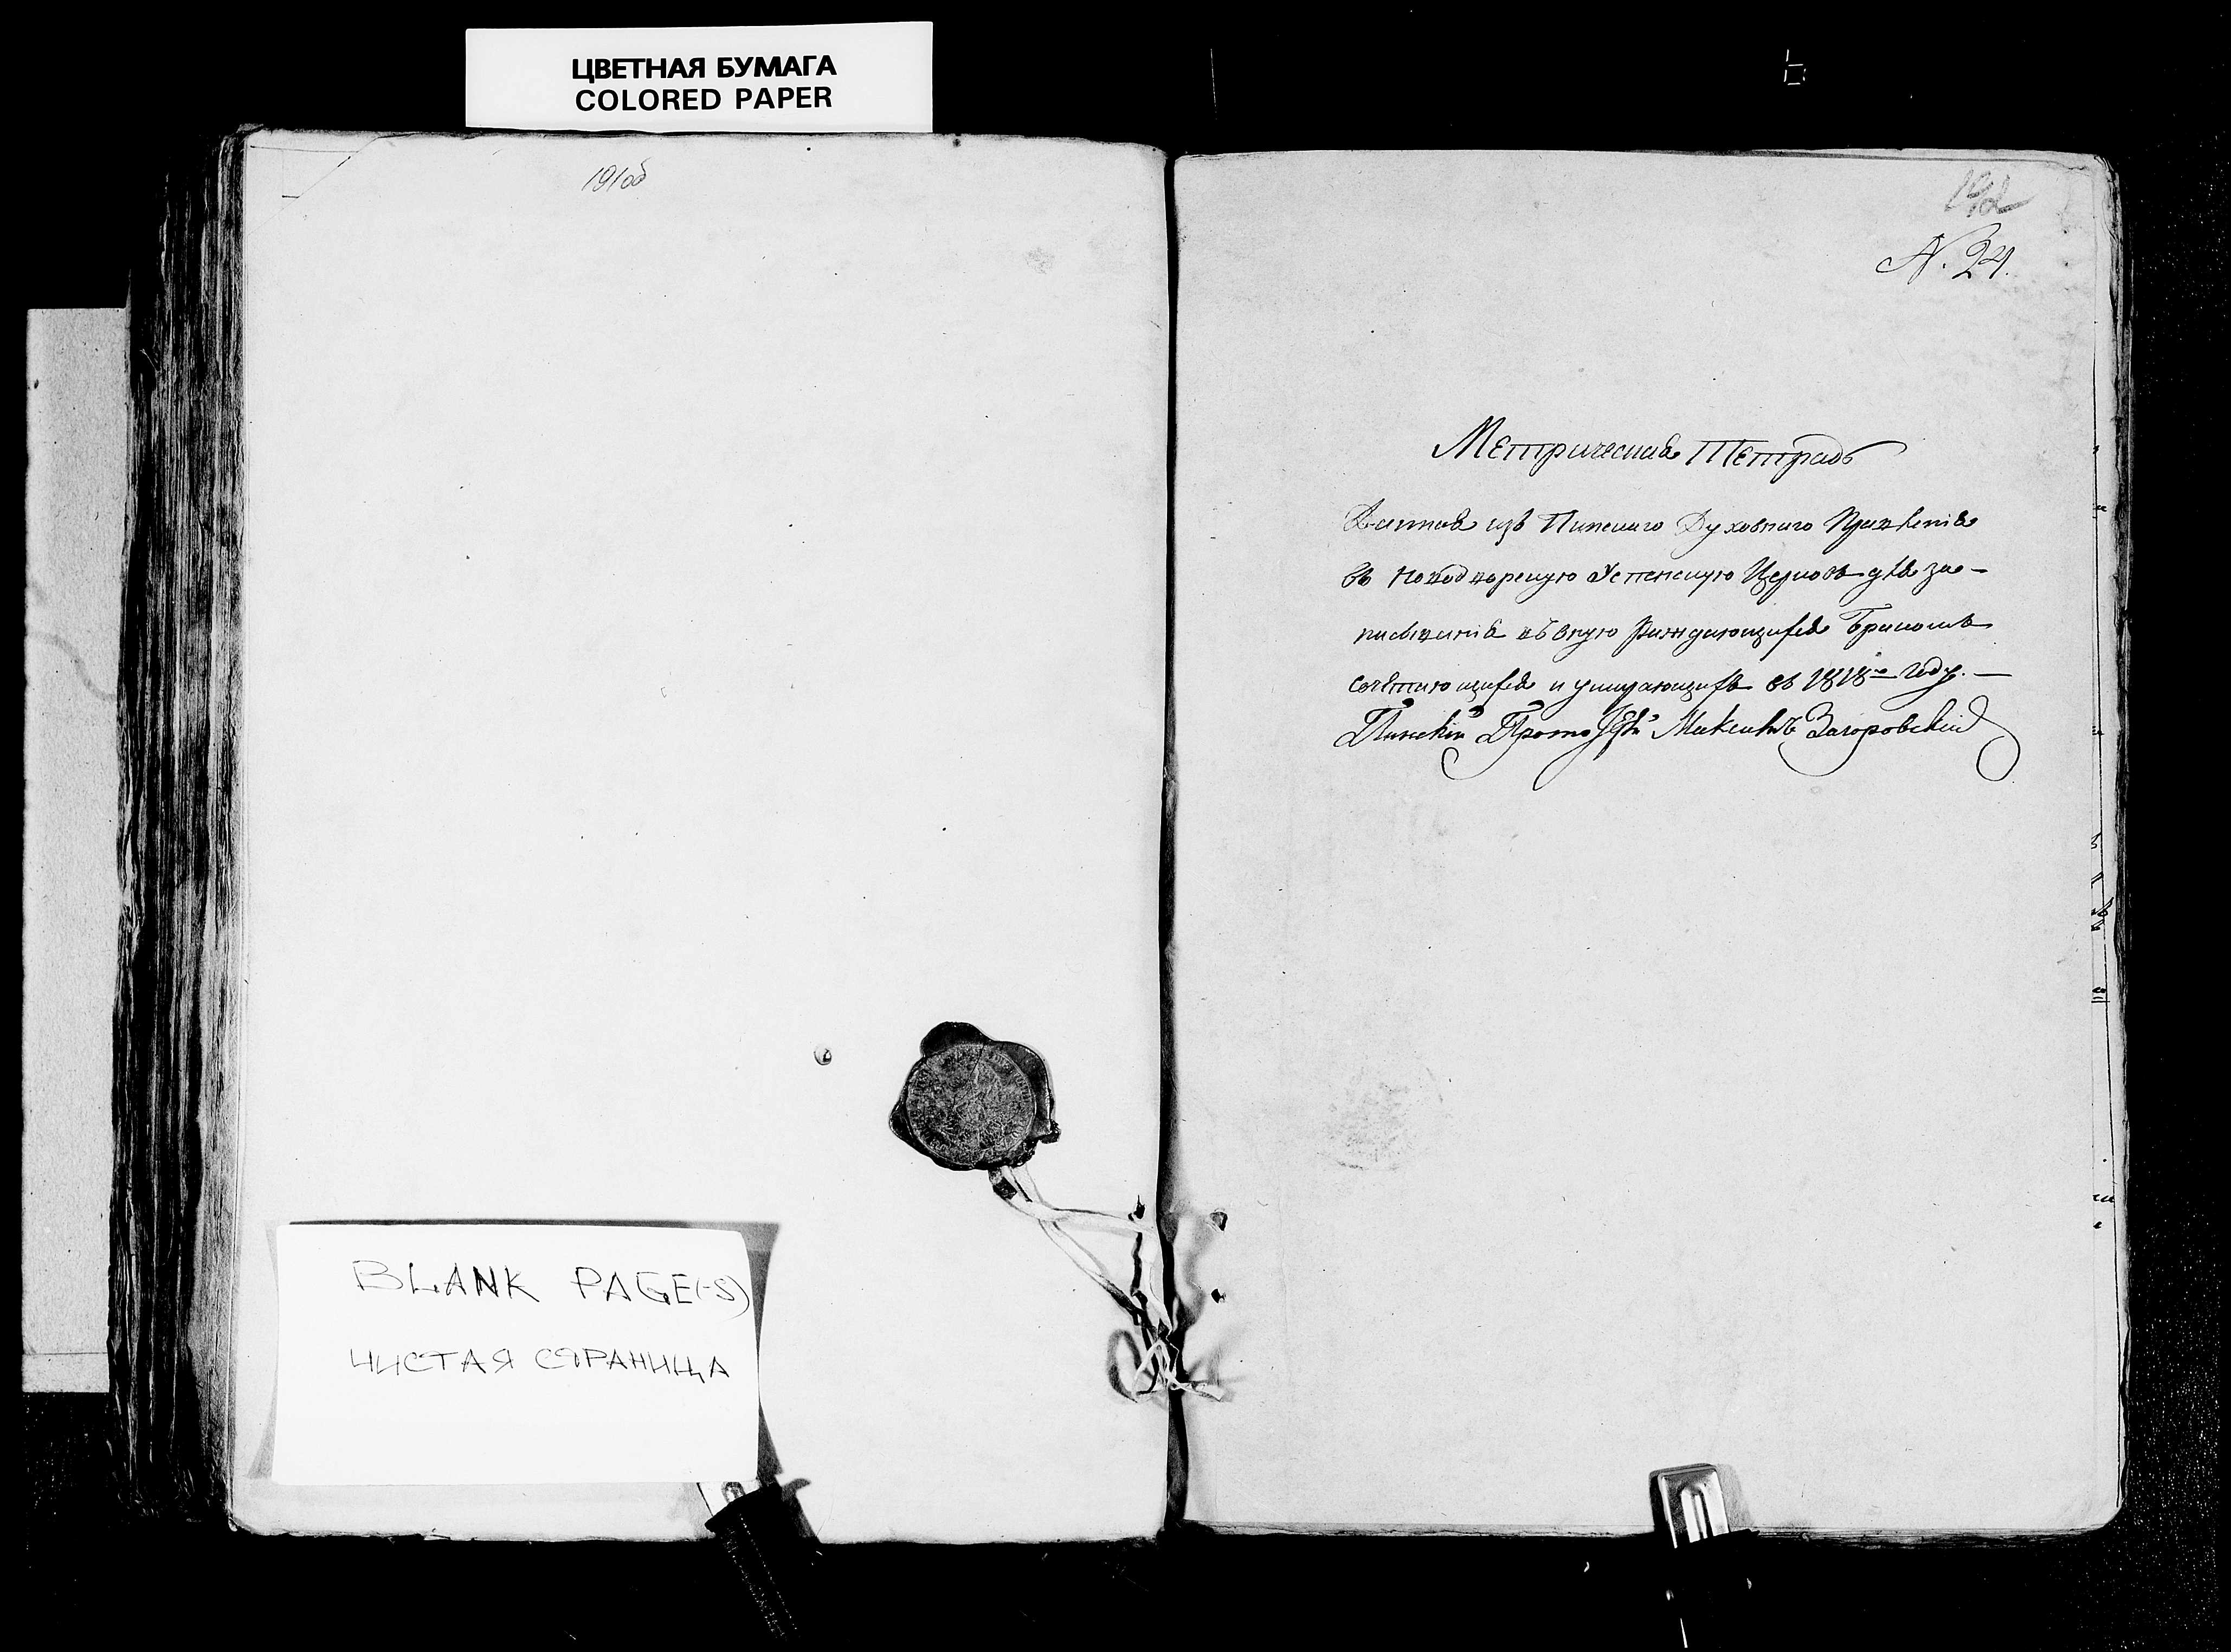 ЦВЕТНАЯ БУМАГА
COLORED PAPER
191об
192
N. 24.
Метрическая Тетрадь
Данная изъ Пинскаго Духовнаго Правленія
въ Новодворскую Успенскую Церковь для за-
писыванія въ оную раждающихся Бракомъ
сочетающихся и умирающихъ въ 1818мъ Году. —
Пинскій Прото Іерей Загоровскій
BLANK PAGE(-S)
ЧИСТАЯ СТРАНИЦА